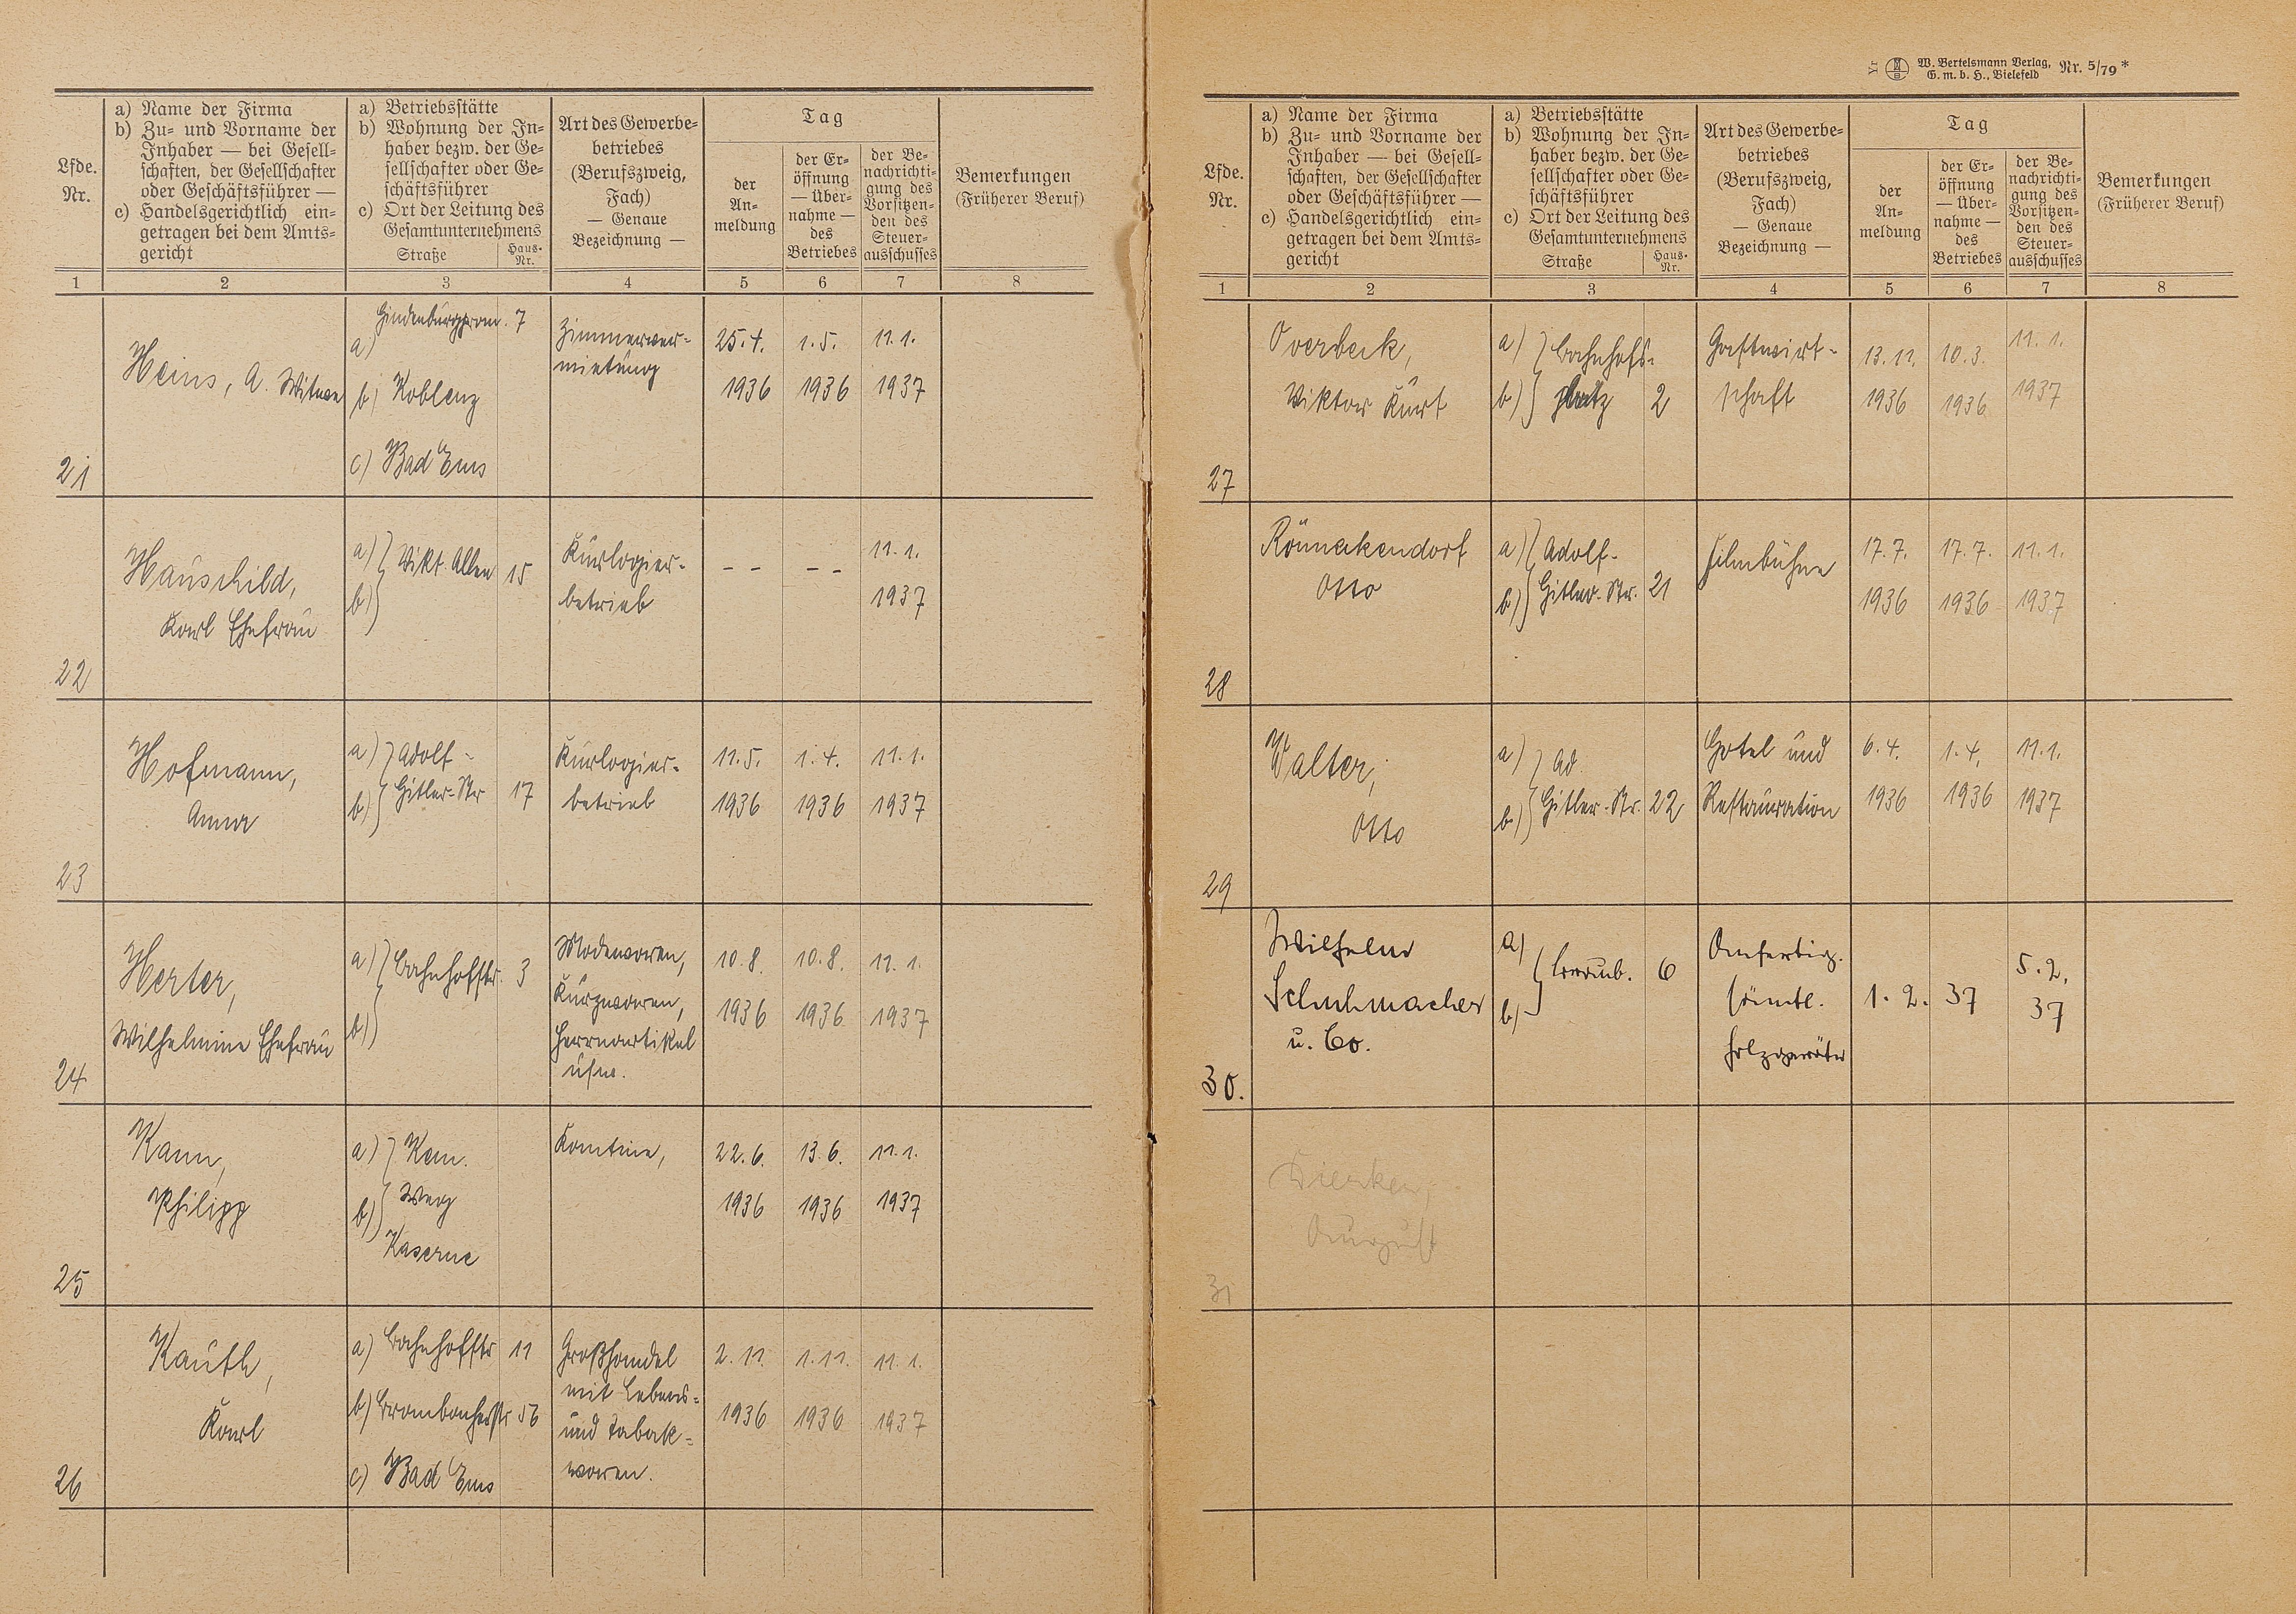 Lfde. Nr.
a) Name der Firma
b) Zu- und Vorname der
Inhaber — bei Gesell-
schaften, der Gesellschafter
oder Geschäftsführer —
c) Handelsgerichtlich ein-
getragen bei dem Amts-
gericht
a) Betriebsstätte
b) Wohnung der In-
haber bezw. der Ge-
sellschafter oder Ge-
schäftsführer
c) Ort der Leitung des
Gesamtunternehmens
Straße
Haus-
Nr.
Art des Gewerbe-
betriebes
(Berufszweig,
Fach)
— Genaue
Bezeichnung —
Tag
der
An-
meldung
der Er-
öffnung
— Über-
nahme —
des
Betriebes
der Be-
nachrichti-
gung des
Vorsitzen-
den des
Steuer-
ausschusses
Bemerkungen
(Früherer Beruf)
1 2 3 4 5 6 7 8
21
Heins, A. Witwe
a) Hindenburgprom. 7
b) Koblenz
c) Bad Ems
Zimmerver-
mietung
25.4.
1936
1.5.
1936
11.1.
1937
22
Hauschild,
Karl Ehefrau
a) Vikt. Allee 15
b)
Kurlogier-
betrieb
- -
- -
11.1.
1937
23
Hofmann,
Anna
a) Adolf-
b) Hitler-Str 17
Kurlogier-
betrieb
11.5.
1936
1.4.
1936
11.1.
1937
24
Herter,
Wilhelmine Ehefrau
a) Bahnhofstr. 3
b)
Modewaren,
Kurzwaren,
Herrnartikel
usw.
10.8.
1936
10.8.
1936
11.1.
1937
25
Kann,
Philipp
a) Kem.
b) Weg
Kaserne
Kantine,
22.6.
1936
13.6.
1936
11.1.
1937
26
Kauth,
Karl
a) Bahnhofstr 11
b) 56
c) Bad Ems
Großhandel
mit Lebens-
und Tabak-
waren.
2.11.
1936
1.11.
1936
11.1.
1937
W. Bertelsmann Verlag,
G. m. b. H., Bielefeld
Nr. 5/79*
Lfde. Nr.
a) Name der Firma
b) Zu- und Vorname der
Inhaber — bei Gesell-
schaften, der Gesellschafter
oder Geschäftsführer —
c) Handelsgerichtlich ein-
getragen bei dem Amts-
gericht
a) Betriebsstätte
b) Wohnung der In-
haber bezw. der Ge-
sellschafter oder Ge-
schäftsführer
c) Ort der Leitung des
Gesamtunternehmens
Straße
Haus-
Nr.
Art des Gewerbe-
betriebes
(Berufszweig,
Fach)
— Genaue
Bezeichnung —
Tag
der
An-
meldung
der Er-
öffnung
— Über-
nahme —
des
Betriebes
der Be-
nachrichti-
gung des
Vorsitzen-
den des
Steuer-
ausschusses
Bemerkungen
(Früherer Beruf)
1 2 3 4 5 6 7 8
27
Overbeck,
Viktor Kurt
a) Bahnhofs-
b) platz 2
Gastwirt-
schaft
13.11.
1936
10.3.
1936
11.1.
1937
28
Rönneckendorf
Otto
a) Adolf-
b) Hitler-Str. 21
Filmbühne
17.7.
1936
17.7.
1936
11.1.
1937
29
Walter,
Otto
a) Ad.
b) Hitler-Str. 22
Hotel und
Restauration
6.4.
1936
1.4.
1936
11.1.
1937
30.
Wilhelm
Schuhmacher
u. Co.
a)
b) 6
Anfertig.
sämtl.
Holzgeräte
1. 2. 37
5. 2.
37
31
August